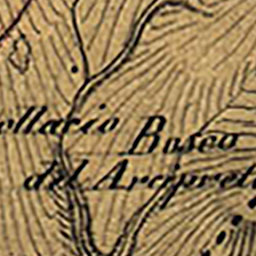 ollario Bosco
del Arcipret